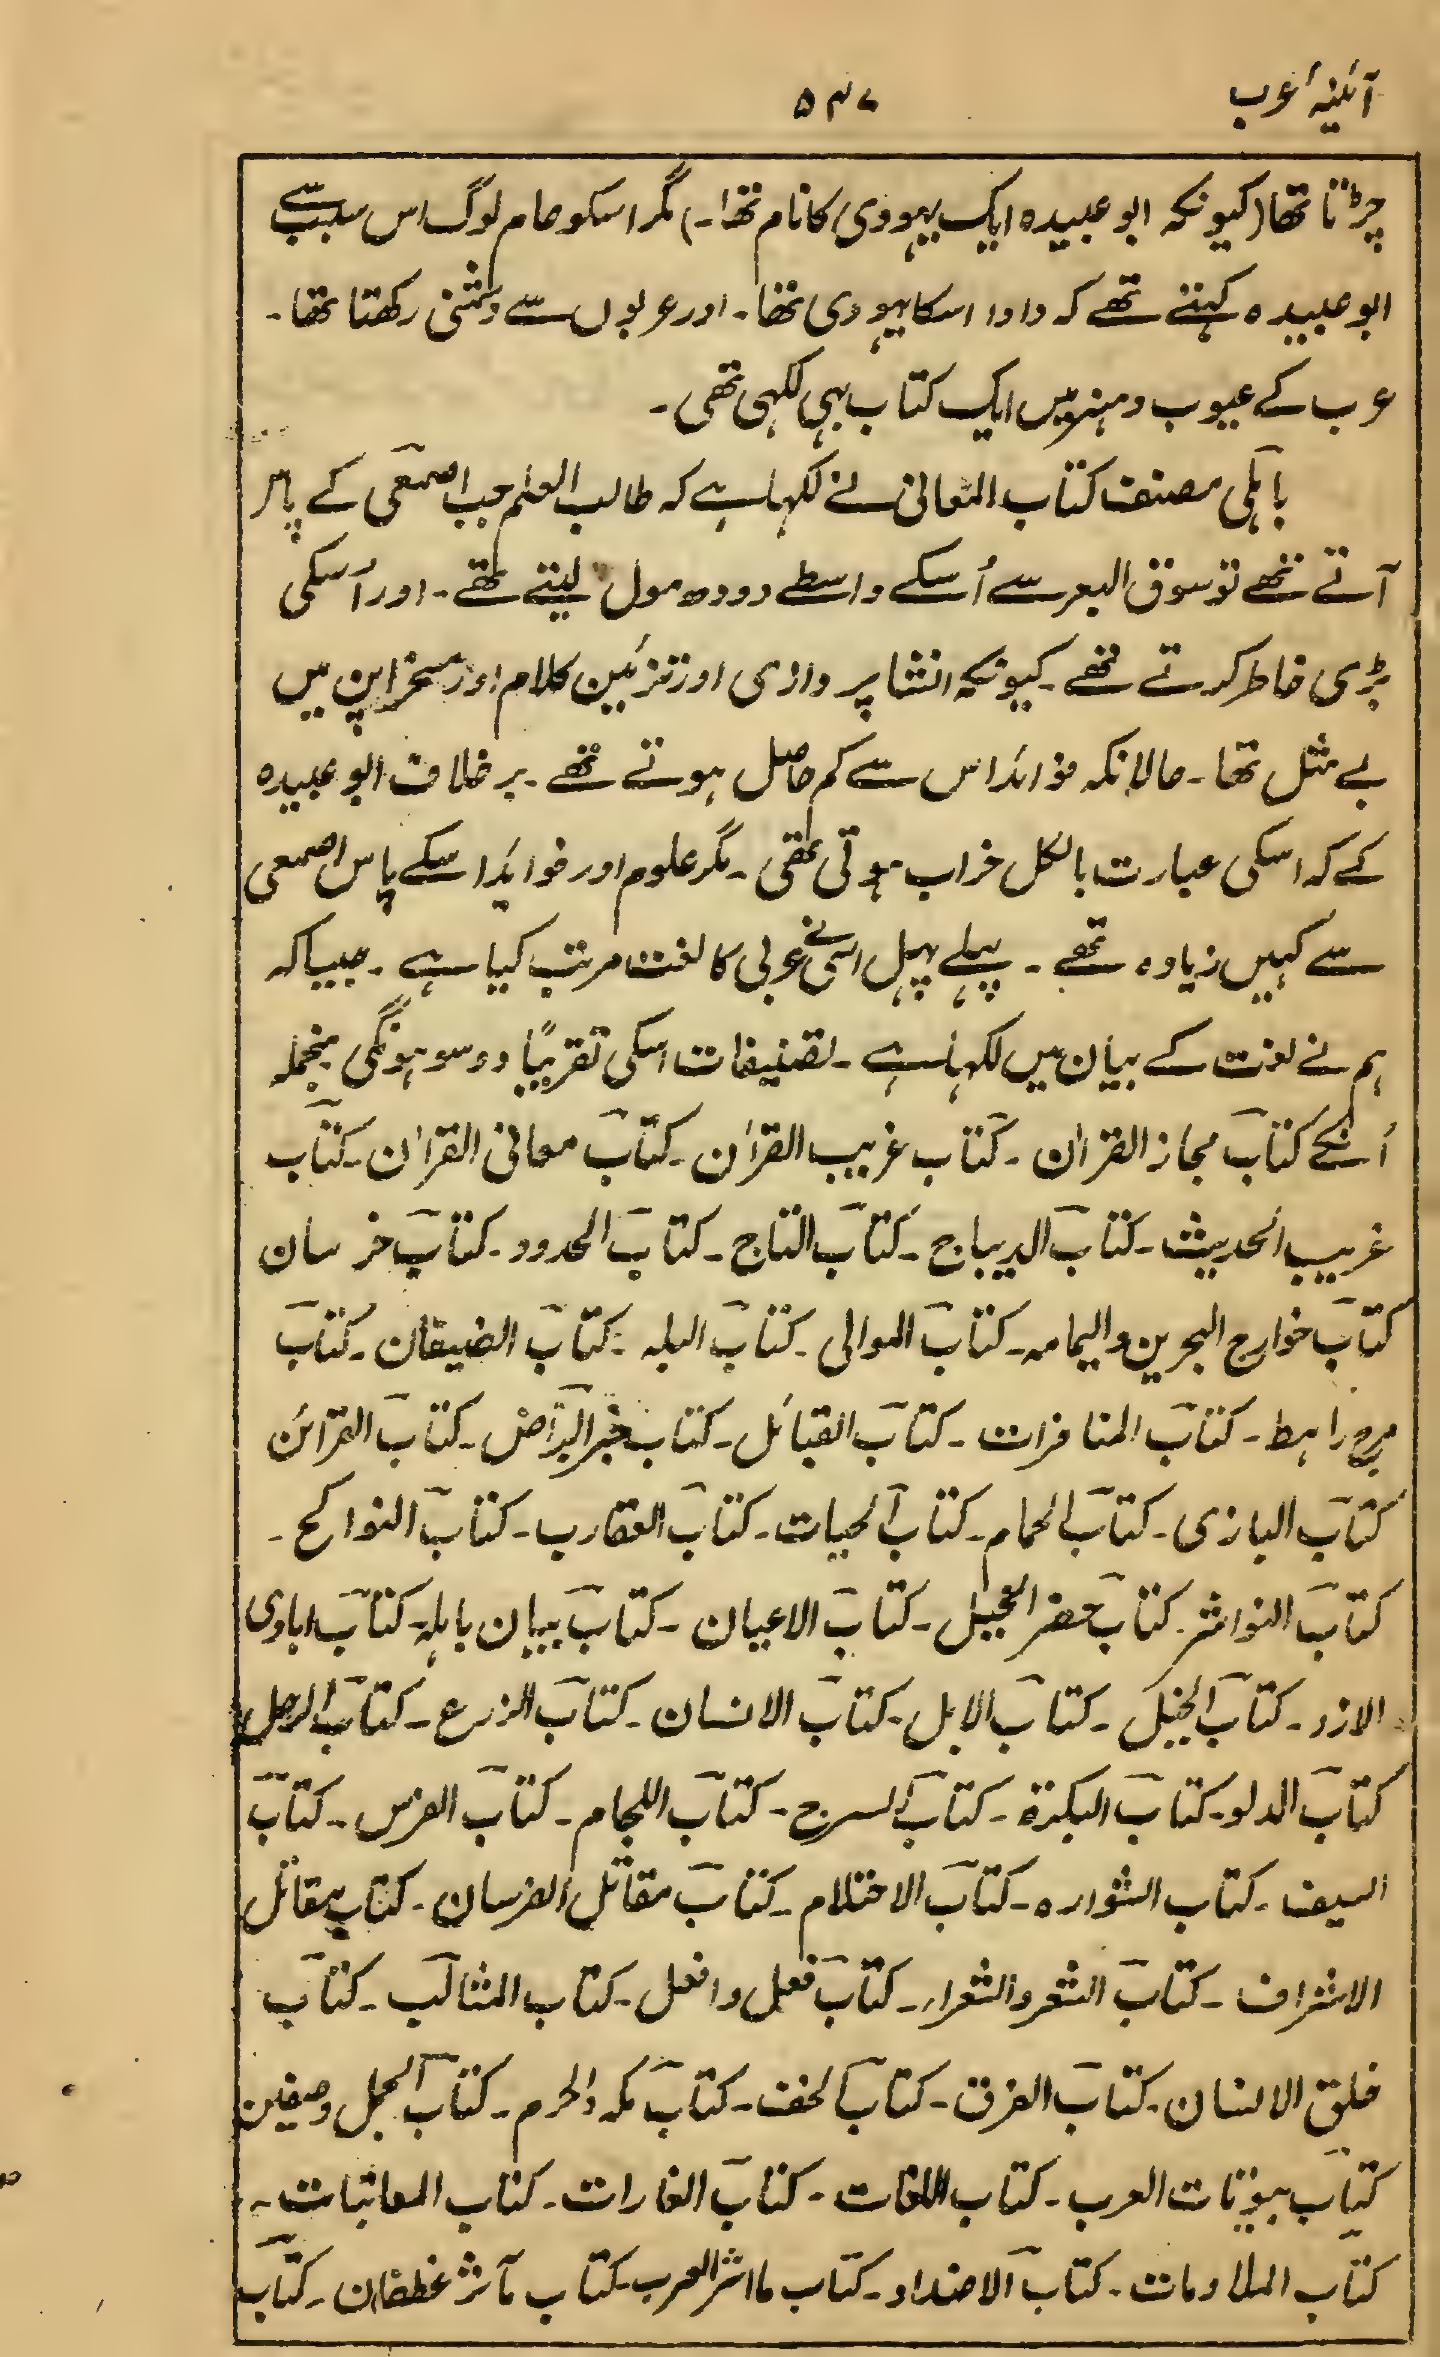 آئینۂ عرب
۵۴۷
چڑتا تھا (کیونکہ ابو عبیدہ ایک یہودی کا نام تھا۔) مگر اسکو عام لوگ اس سبب سے
ابو عبیدہ کہتے تھے کہ دادا اسکا یہودی تھا۔ اور عربوں سے دشمنی رکھتا تھا۔
عرب کے عیوب و ہنر میں ایک کتاب بہی لکہی تھی۔
باہلی مصنف کتاب المعانی نے لکہا ہے کہ طالب العلم جب اصمعی کے پاس
آتے تھے تو سوق البعر سے اُسکے واسطے دودھ مول لیتے تھے۔ اور اُسکی
بڑی خاطر کرتے تھے۔ کیونکہ انشا پردازی اور تزئین کلام اور مسخراپن میں
بے مثل تھا۔ حالانکہ فوائد اس سے کم حاصل ہوتے تھے۔ بر خلاف ابو عبیدہ
کے کہ اسکی عبارت بالکل خراب ہوتی تھی۔ مگر علوم اور فوائد اسکے پاس اصمعی
سے کہیں زیادہ تھے۔ پہلے پہل اسی نے عربی کا لغت مرتب کیا ہے۔ جیسا کہ
ہم نے لغت کے بیان میں لکہا ہے۔ تصنیفات اسکی تقریبًا دو سو ہونگی منجملہ
اُنکے کتاب مجاز القراٰن۔ کتاب غریب القراٰن۔ کتاب معانی القراٰن۔ کتاب
غریب الحدیث۔ کتاب الدیباج۔ کتاب التاج۔ کتاب الحدود۔ کتاب خراسان
کتاب خوارج البحرین والیمامہ۔ کتاب الموالی۔ کتاب البلہ۔ کتاب الضیفان۔ کتاب
مرج راہط۔ کتاب المنافرات۔ کتاب القبائل۔ کتاب خبر البراض۔ کتاب القرائن
کتاب البازی۔ کتاب الحمام۔ کتاب الحیات۔ کتاب العقارب۔ کتاب النواکح۔
کتاب النواشز۔ کتاب حضر الخیل۔ کتاب الاعیان۔ کتاب بیان باہلہ۔ کتاب ایادی
الازد۔ کتاب الخیل۔ کتاب الابل۔ کتاب الانسان۔ کتاب الزرع۔ کتاب الرحل
کتاب الدلو۔ کتاب البکرۃ۔ کتاب السرج۔ کتاب اللجام۔ کتاب الفرس۔ کتاب
السیف۔ کتاب الشوارہ۔ کتاب الاحتلام۔ کتاب مقاتل الفرسان۔ کتاب مقاتل
الاشراف۔ کتاب الشعر والشعراء۔ کتاب فعل وافعل۔ کتاب المثالب۔ کتاب
خلق الانسان۔ کتاب الفرق۔ کتاب الخف۔ کتاب مکہ والحرم۔ کتاب الجمل وصفین
کتاب بیوتات العرب۔ کتاب اللغات۔ کتاب الغارات۔ کتاب المعاتبات۔
کتاب الملاومات۔ کتاب الاضداد۔ کتاب مااثر العرب۔ کتاب مآثر غطفان۔ کتاب